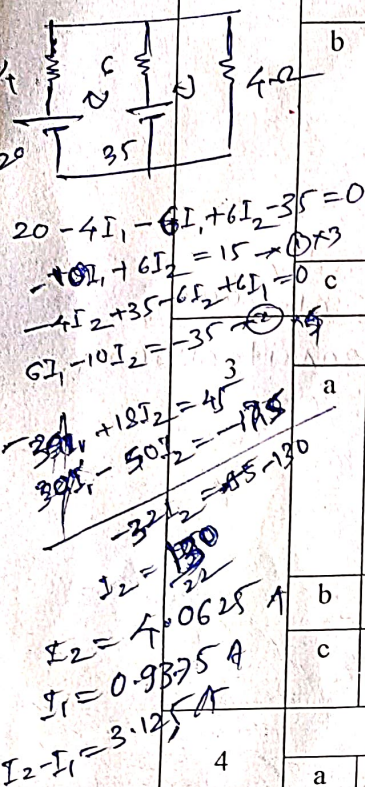 b
4
6
4Ω
20
35
20 - 4I₁ - 6I₁ + 6I₂ - 35 = 0
-10I₁ + 6I₂ = 15 → ① × 3
c
-4I₂ + 35 - 6I₂ + 6I₁ = 0
6I₁ - 10I₂ = -35 → ② × 5
3
a
-30I₁ + 18I₂ = 45
30I₁ - 50I₂ = -175
-32I₂ = -130
I₂ = 130
b
I₂ = 4.0625 A
c
I₁ = 0.9375 A
I₂ - I₁ = 3.125 A
4
a